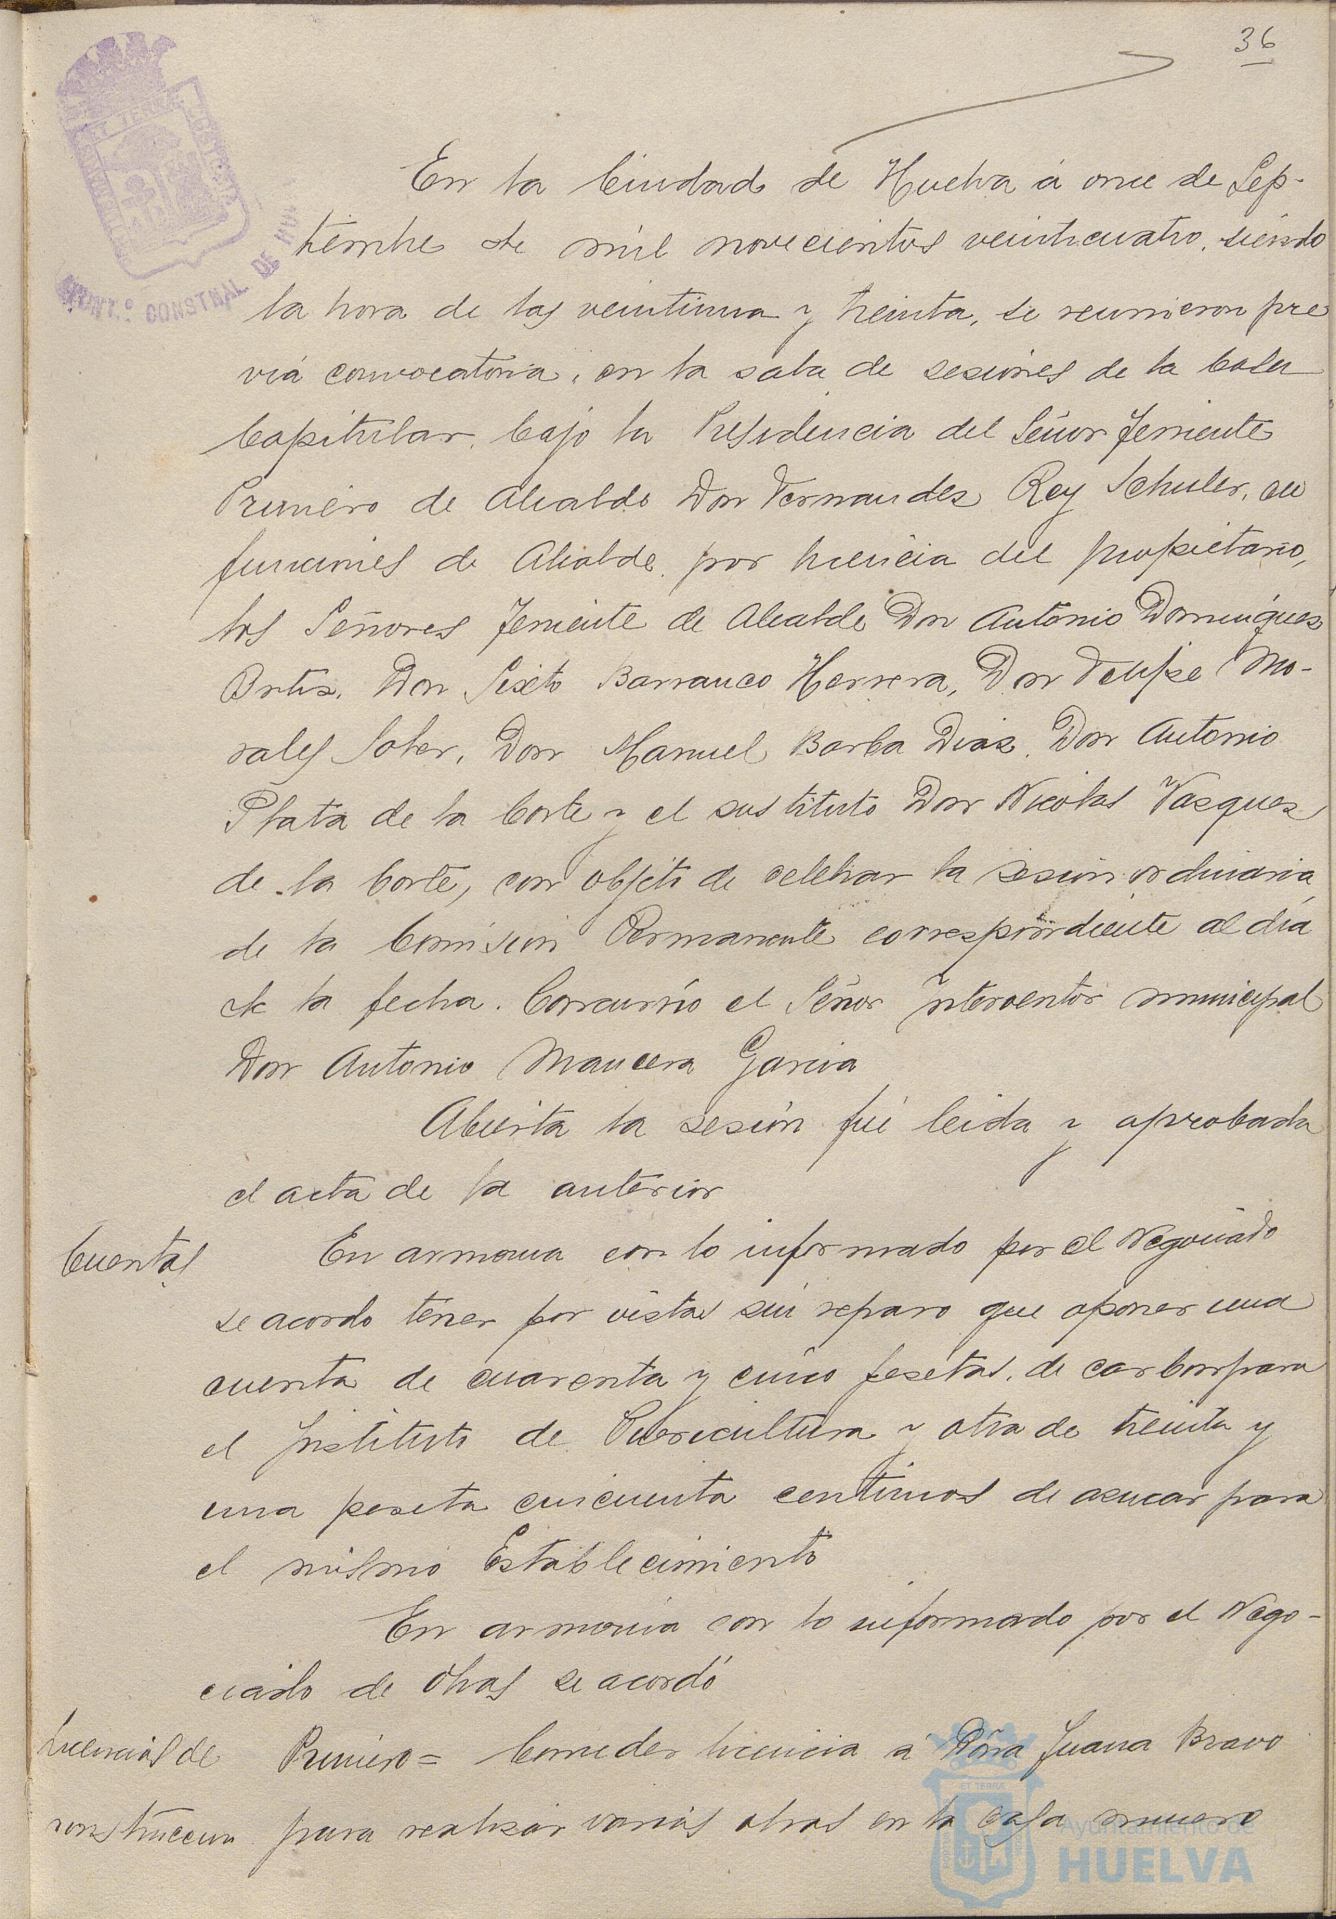 36
En la Ciudad de Huelva á once de Sep-
tiembre de mil novecientos veinticuatro, siendo
la hora de las veintiuna y treinta, se reunieron pre
via convocatoria, en la sala de sesiones de la Casa
Capitular, bajo la Presidencia del Señor Teniente
Primero de Alcalde Don Fernandez Rey Schuler, en
funciones de Alcalde por licencia del propietario,
los Señores Teniente de Alcalde Don Antonio Dominguez
Ortiz, Don Sixto Barranco Herrera, Don Felipe Mo-
rales Soler, Don Manuel Barba Diaz, Don Antonio
Plata de la Corte y el sustituto Don Nicolas Vazquez
de la Corte, con objeto de celebrar la sesion ordinaria
de la Comision Permanente correspondiente al dia
de la fecha. Concurrio el Señor Interventor municipal
Don Antonio Mancera Garcia
Abierta la sesión fué leida y aprobada
el acta de la anterior
Cuentas En armonia con lo informado por el Negociado
se acordo tener por vistas sin reparo que oponer una
cuenta de cuarenta y cinco pesetas, de carbon para
el Instituto de Puericultura y otra de treinta y
una peseta cincuenta centimos de azucar para
el mismo Establecimiento
En armonia con lo informado por el Nego-
ciado de Obras se acordó
Licencias de Primero = Conceder licencia á Doña Juana Bravo
construccion para realizar varias obras en la casa numero
ET TERRA
AYUNT.º CONSTNAL DE HU
Ayuntamiento de
HUELVA